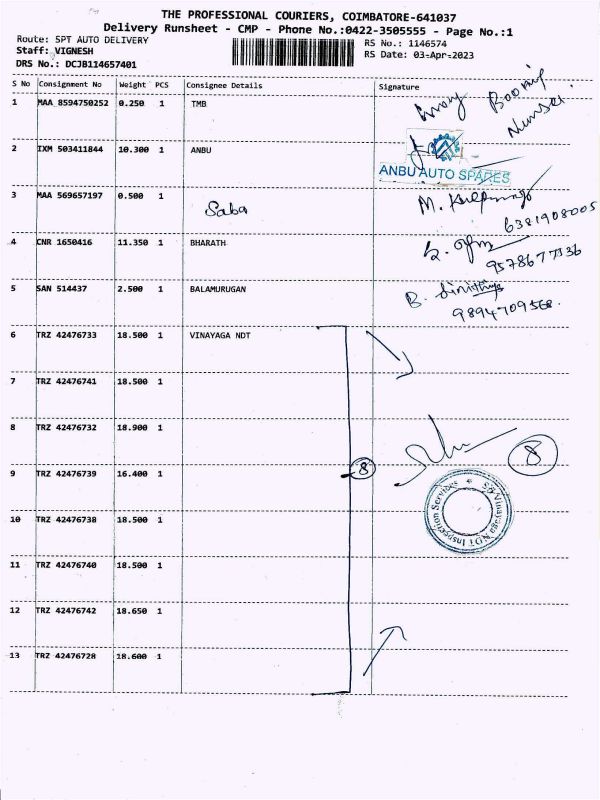 THE PROFESSIONAL COURIERS, COIMBATORE-641037
Delivery Runsheet - CMP - Phone No.:0422-3505555 - Page No.:1
Route: SPT AUTO DELIVERY
RS No.: 1146574
Staff: VIGNESH
RS Date: 03-Apr-2023
DRS No.: DCJB114657401
S No Consignment No Weight PCS Consignee Details Signature
1 MAA 8594750252 0.250 1 TMB
2 IXM 503411844 10.300 1 ANBU
ANBU AUTO SPARES
3 MAA 569657197 0.500 1
Saba
6381908005
4 CNR 1650416 11.350 1 BHARATH
9578677336
5 SAN 514437 2.500 1 BALAMURUGAN
9894709568.
6 TRZ 42476733 18.500 1 VINAYAGA NDT
7 TRZ 42476741 18.500 1
8 TRZ 42476732 18.900 1
8
9 TRZ 42476739 16.400 1
8
Sri Vinayaga NDT Inspection Services
10 TRZ 42476738 18.500 1
11 TRZ 42476740 18.500 1
12 TRZ 42476742 18.650 1
13 TRZ 42476728 18.600 1